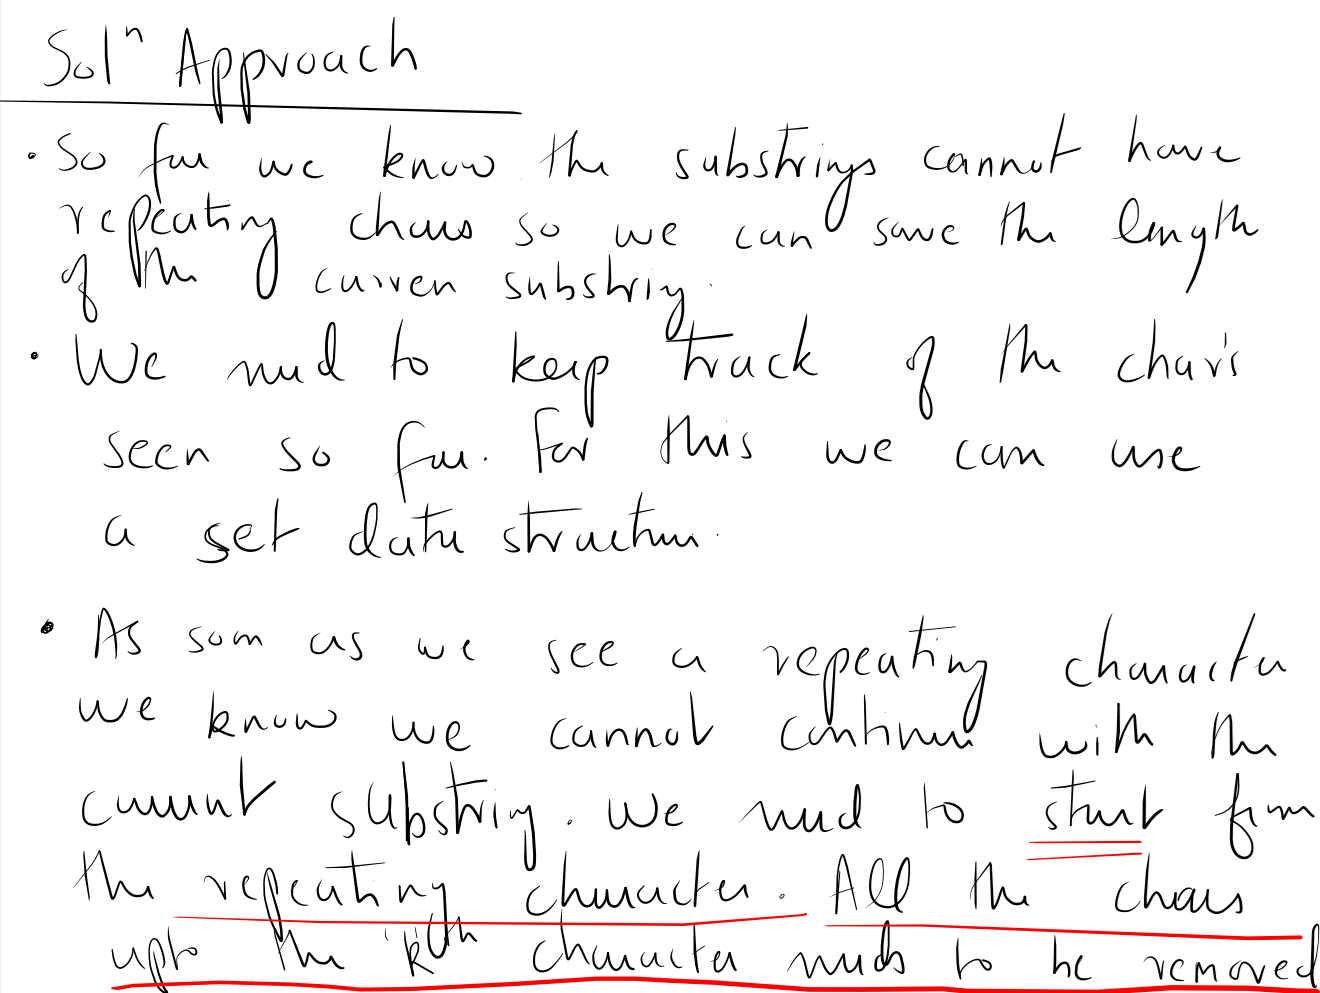 Solⁿ Approach
• So far we know the substrings cannot have
repeating chars so we can save the length
of the curren substring.
• We need to keep track of the char's
seen so far. For this we can use
a set data structure.
• As soon as we see a repeating character
we know we cannot continue with the
current substring. We need to start from
the repeating character. All the chars
upto the 'k'th character needs to be removed